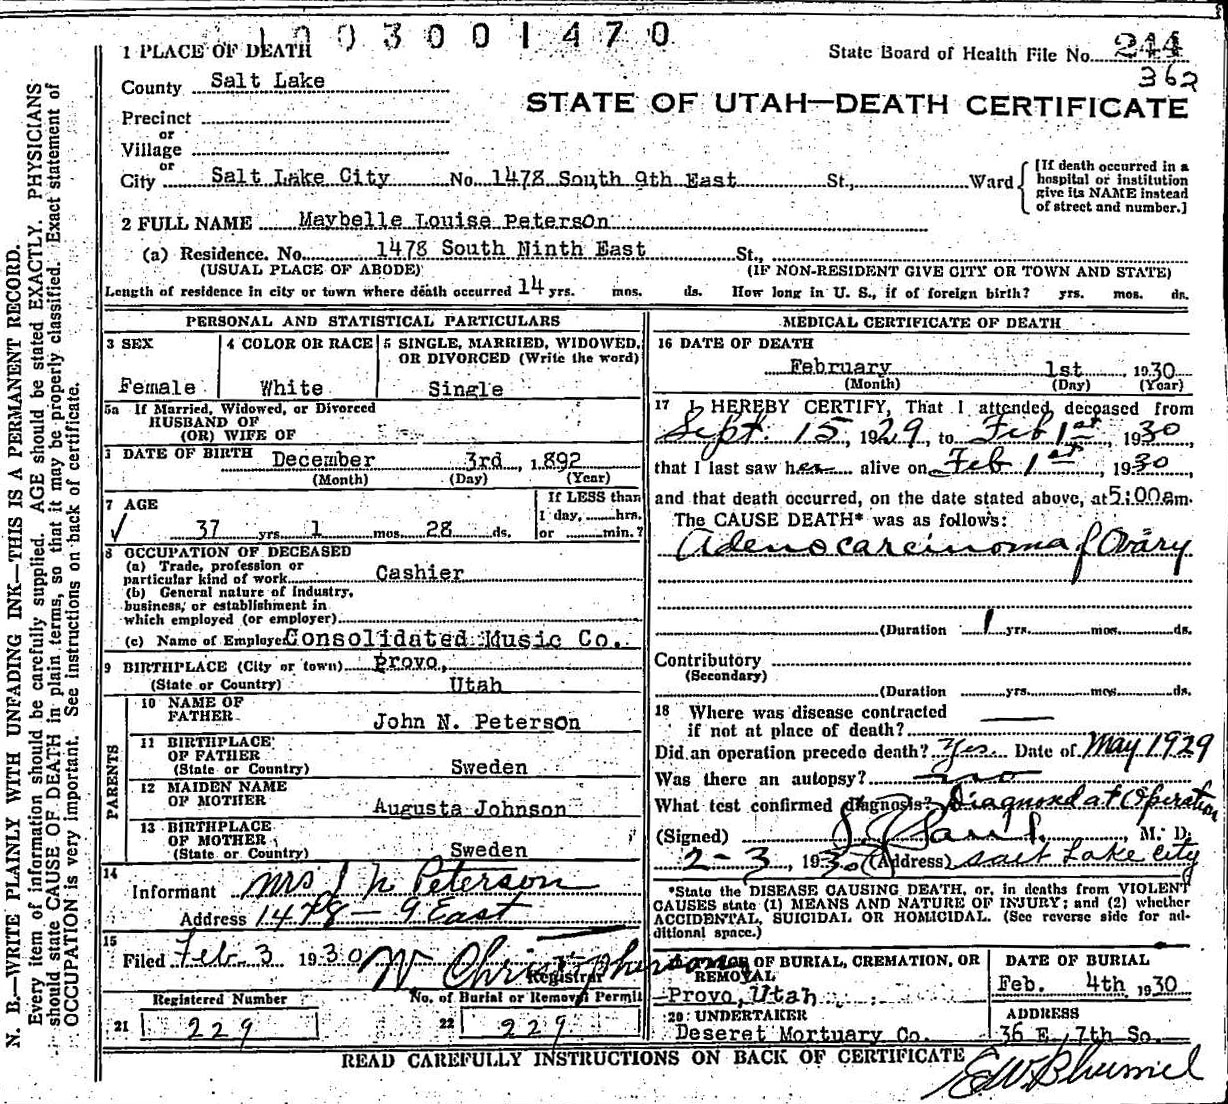 1003001470
1 PLACE OF DEATH
State Board of Health File No. 244
362
County Salt Lake
STATE OF UTAH—DEATH CERTIFICATE
Precinct
or
Village
or
City Salt Lake City No. 1478 South 9th East St., Ward
[If death occurred in a
hospital or institution
give its NAME instead
of street and number.]
2 FULL NAME Maybelle Louise Peterson
(a) Residence. No. 1478 South Ninth East St.,
(USUAL PLACE OF ABODE) (IF NON-RESIDENT GIVE CITY OR TOWN AND STATE)
Length of residence in city or town where death occurred 14 yrs. mos. ds. How long in U. S., if of foreign birth? yrs. mos. ds.
PERSONAL AND STATISTICAL PARTICULARS
3 SEX
Female
4 COLOR OR RACE
White
5 SINGLE, MARRIED, WIDOWED,
OR DIVORCED (Write the word)
Single
5a If Married, Widowed, or Divorced
HUSBAND OF
(OR) WIFE OF
DATE OF BIRTH December 3rd, 1892
(Month) (Day) (Year)
7 AGE
37 yrs. 1 mos. 28 ds.
If LESS than
1 day, hrs.
or min.?
8 OCCUPATION OF DECEASED
(a) Trade, profession or
particular kind of work Cashier
(b) General nature of industry,
business, or establishment in
which employed (or employer)
(c) Name of Employer Consolidated Music Co.
9 BIRTHPLACE (City or town) Provo,
(State or Country) Utah
PARENTS
10 NAME OF
FATHER John N. Peterson
11 BIRTHPLACE
OF FATHER
(State or Country) Sweden
12 MAIDEN NAME
OF MOTHER Augusta Johnson
13 BIRTHPLACE
OF MOTHER
(State or Country) Sweden
14
Informant Mrs J N Peterson
Address 1478 - 9 East
15
Filed Feb. 3 1930 W Christopherson
Registrar
Registered Number
21 229
No. of Burial or Removal Permit
22 229
MEDICAL CERTIFICATE OF DEATH
16 DATE OF DEATH
February 1st, 1930
(Month) (Day) (Year)
17 I HEREBY CERTIFY, That I attended deceased from
Sept. 15, 1929, to Feb 1st, 1930,
that I last saw her alive on Feb 1st, 1930,
and that death occurred, on the date stated above, at 5:00am.
The CAUSE DEATH* was as follows:
Adenocarcinoma of Ovary
(Duration 1 yrs. mos. ds.
Contributory
(Secondary)
(Duration yrs. mos. ds.
18 Where was disease contracted
if not at place of death?
Did an operation precede death? Yes Date of May 1929
Was there an autopsy? no
What test confirmed diagnosis? Diagnosed at Operation
(Signed) M. D.
2-3, 1930 (Address) Salt Lake City
*State the DISEASE CAUSING DEATH, or, in deaths from VIOLENT
CAUSES state (1) MEANS AND NATURE OF INJURY; and (2) whether
ACCIDENTAL, SUICIDAL OR HOMICIDAL. (See reverse side for ad-
ditional space.)
OF BURIAL, CREMATION, OR
REMOVAL
Provo, Utah
DATE OF BURIAL
Feb. 4th, 1930
20 UNDERTAKER
Deseret Mortuary Co.
ADDRESS
36 E. 7th So.
READ CAREFULLY INSTRUCTIONS ON BACK OF CERTIFICATE
N. B.—WRITE PLAINLY WITH UNFADING INK—THIS IS A PERMANENT RECORD.
Every item of information should be carefully supplied. AGE should be stated EXACTLY. PHYSICIANS
should state CAUSE OF DEATH in plain terms, so that it may be properly classified. Exact statement of
OCCUPATION is very important. See instructions on back of certificate.